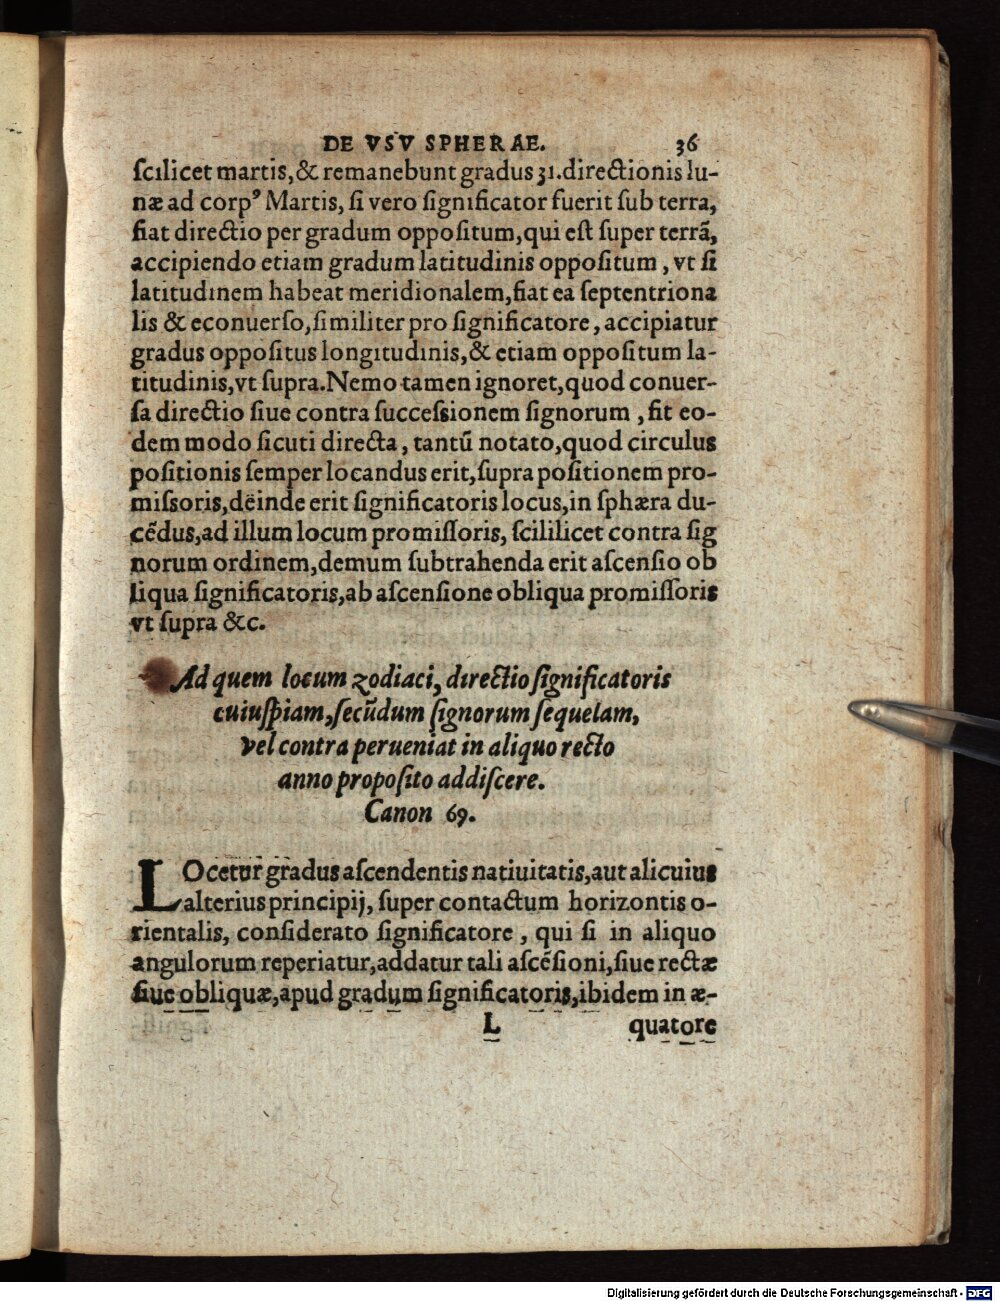 DE VSV SPHERAE. 36
ſcilicet martis,& remanebunt gradus 31.directionis lu-
næ ad corpꝰ Martis, ſi vero ſignificator fuerit ſub terra,
fiat directio per gradum oppoſitum,qui eſt ſuper terrã,
accipiendo etiam gradum latitudinis oppoſitum , vt ſi
latitudinem habeat meridionalem,fiat ea ſeptentriona
lis & econuerſo,ſimiliter pro ſignificatore, accipiatur
gradus oppoſitus longitudinis,& etiam oppoſitum la-
titudinis,vt ſupra.Nemo tamen ignoret,quod conuer-
ſa directio ſiue contra ſucceſsionem ſignorum , fit eo-
dem modo ſicuti directa, tantũ notato,quod circulus
poſitionis ſemper locandus erit,ſupra poſitionem pro-
miſsoris,dëinde erit ſignificatoris locus,in ſphæra du-
cẽdus,ad illum locum promiſſoris, ſcililicet contra ſig
norum ordinem,demum ſubtrahenda erit aſcenſio ob
liqua ſignificatoris,ab aſcenſione obliqua promiſſoris
vt ſupra &c.
Ad quem locum zodiaci, directio ſignificatoris
cuiuſpiam,ſecũdum ſignorum ſequelam,
vel contra perueniat in aliquo recto
anno propoſito addiſcere.
Canon 69.
LOcetur gradus aſcendentis natiuitatis,aut alicuius
alterius principij, ſuper contactum horizontis o-
rientalis, conſiderato ſignificatore , qui ſi in aliquo
angulorum reperiatur,addatur tali aſcẽſioni,ſiue rectæ
ſiue obliquæ,apud gradum ſignificatoris,ibidem in æ-
L quatore
Digitalisierung gefördert durch die Deutsche Forschungsgemeinschaft - DFG